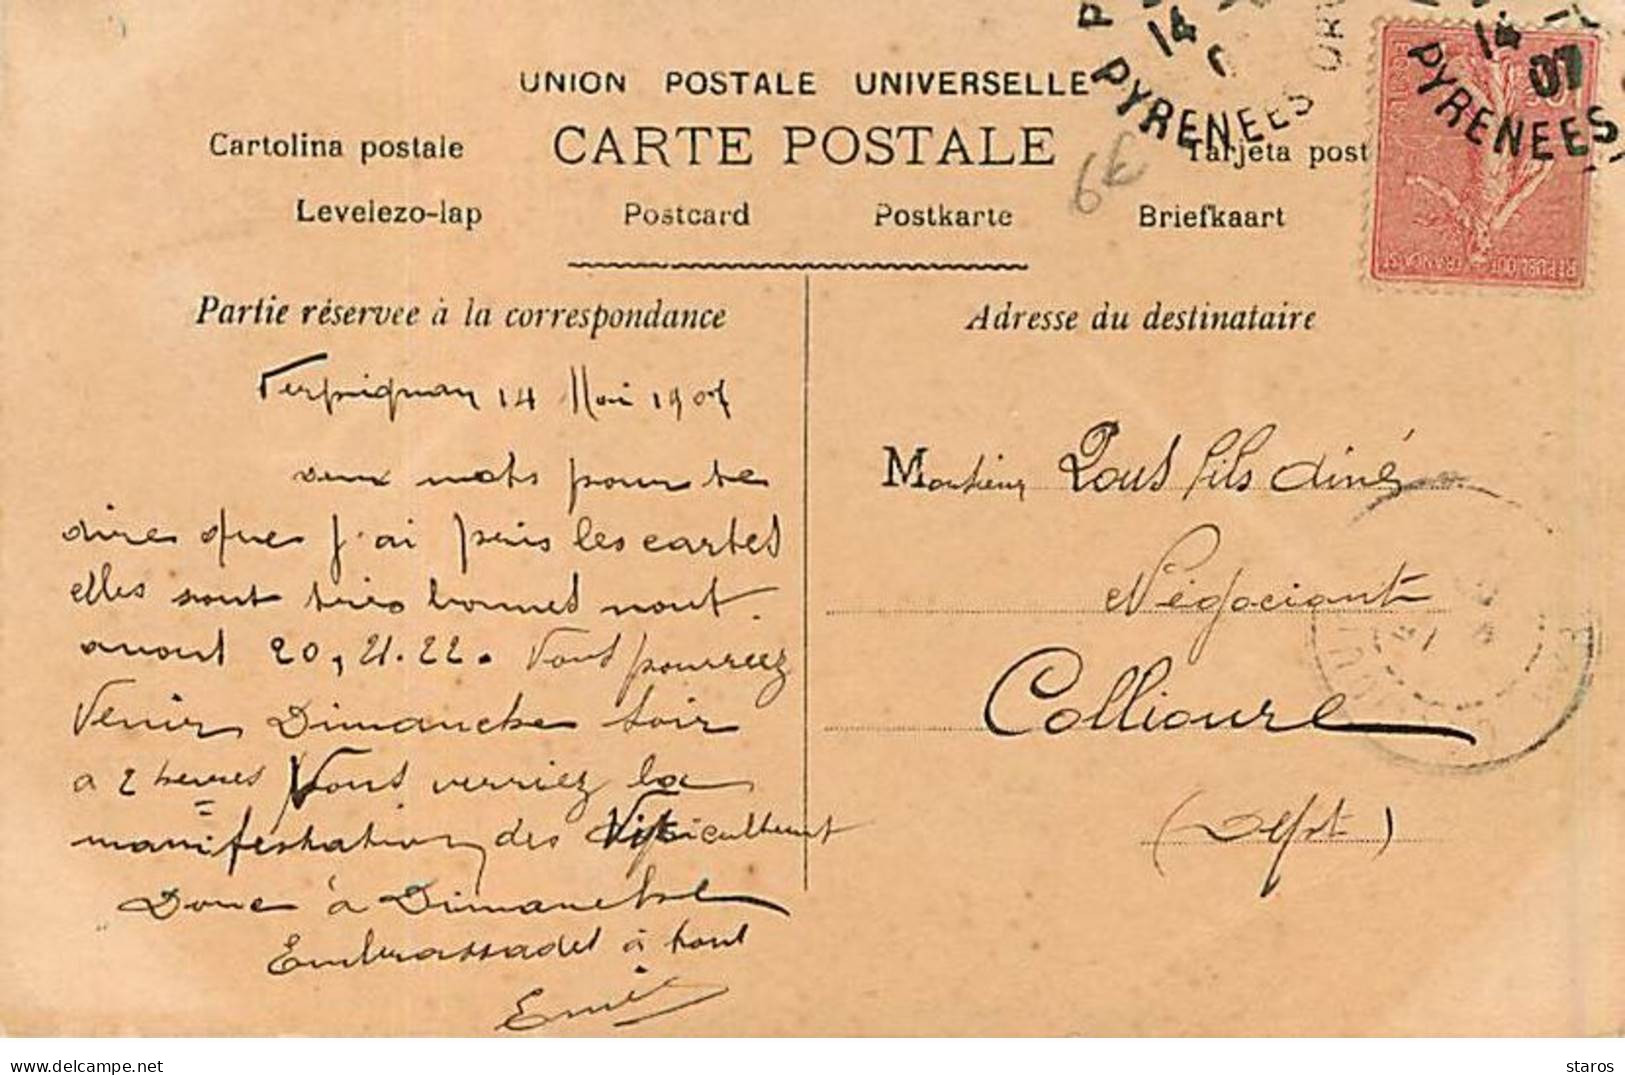 14
PYRENEES
14
07
PYRENEES
UNION POSTALE UNIVERSELLE
Cartolina postale
CARTE POSTALE
Tarjeta post
6€
Levelezo-lap
Postcard
Postkarte
Briefkaart
POSTES
REPUBLIQUE FRANÇAISE
Partie réservée à la correspondance
Adresse du destinataire
Perpignan 14 Mai 1907
deux mots pour te
dire que j'ai pris les cartes
elles sont très bonnes nous
avons 20, 21. 22. Vous pourriez
Venir Dimanche soir
a 2 heures Vous verriez la
manifestation des Viticulteurs
Donc à Dimanche
Embrassades à tous
Monsieur Pous fils ainé
Négociant
Collioure
(Dept)
staros
delcampe.net